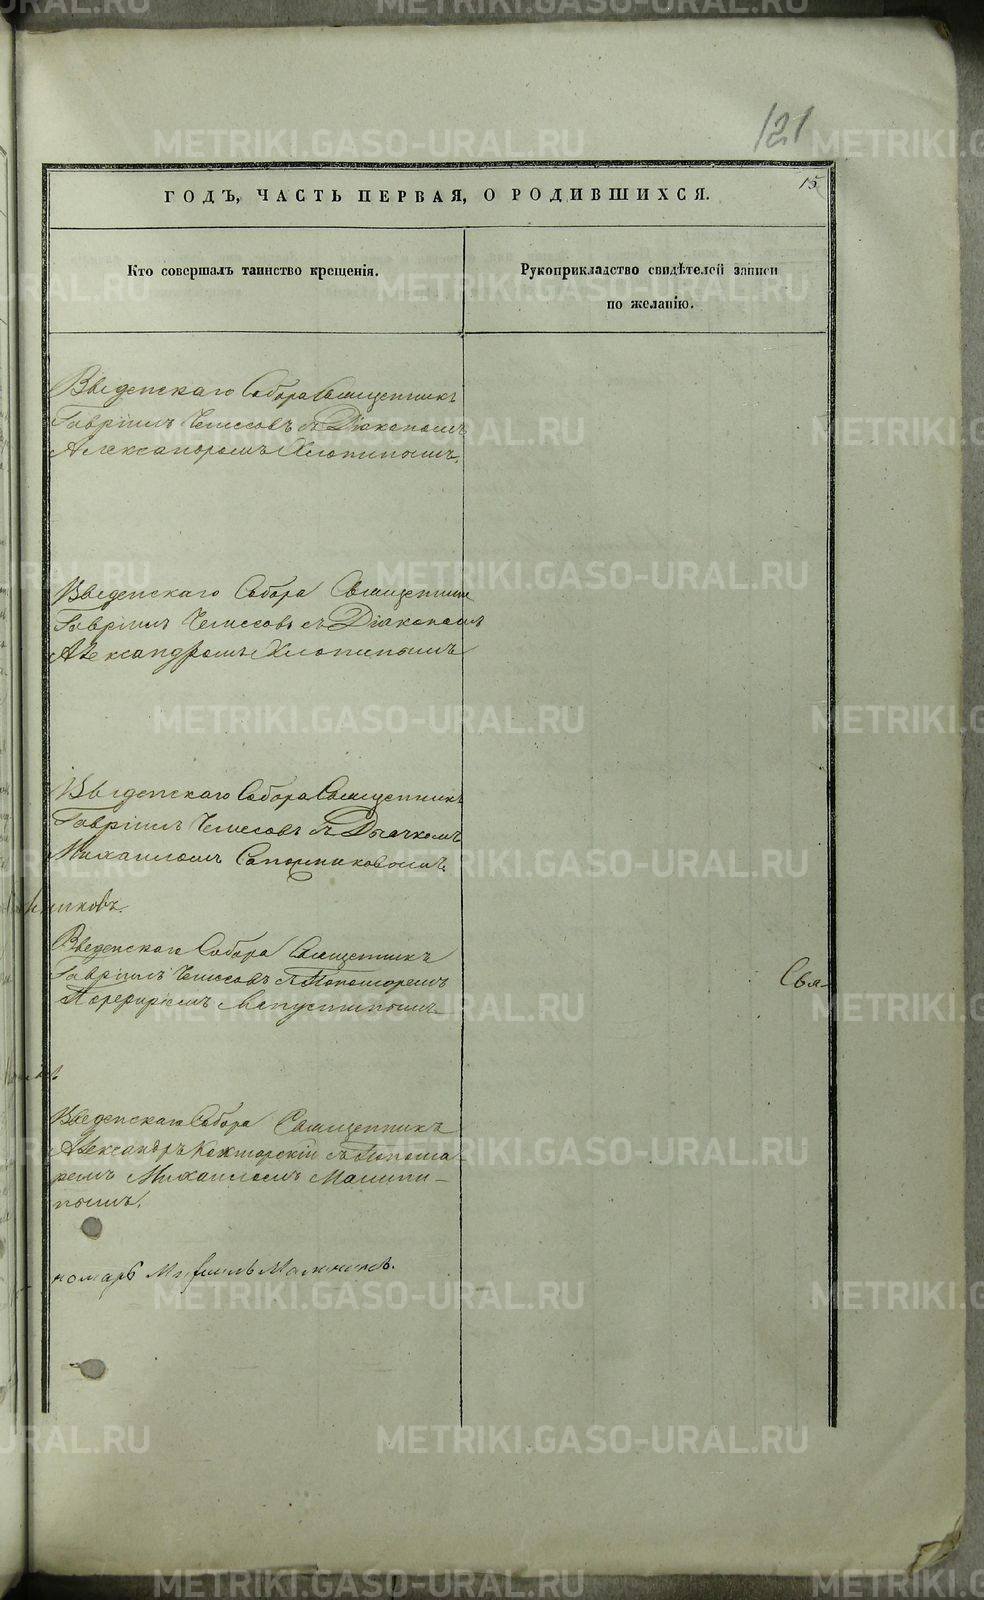 121
15
ГОДЪ, ЧАСТЬ ПЕРВАЯ, О РОДИВШИХСЯ.
Кто совершалъ таинство крещенія.
Рукоприкладство свидѣтелей записи
по желанію.
Введенскаго Собора Священникъ
Гавріилъ Чемесовъ съ Діакономъ
Александромъ Хлопинымъ.
Введенскаго Собора Священник
Гавріилъ Чемесовъ съ Діакономъ
Александромъ Хлопинымъ
Введенскаго Собора Священникъ
Гавріилъ Чемесовъ съ Дьячкомъ
Михаиломъ Сапожниковымъ.
никовъ.
Введенскаго Собора Священникъ
Гавріилъ Чемесовъ съ Пономаремъ
Порфиріемъ
Свя-
Введенскаго Собора Священникъ
Александръ съ Понома
ремъ Михаиломъ Малини-
нымъ.
номарь Михаилъ Малининъ.
METRIKI.GASO-URAL.RU